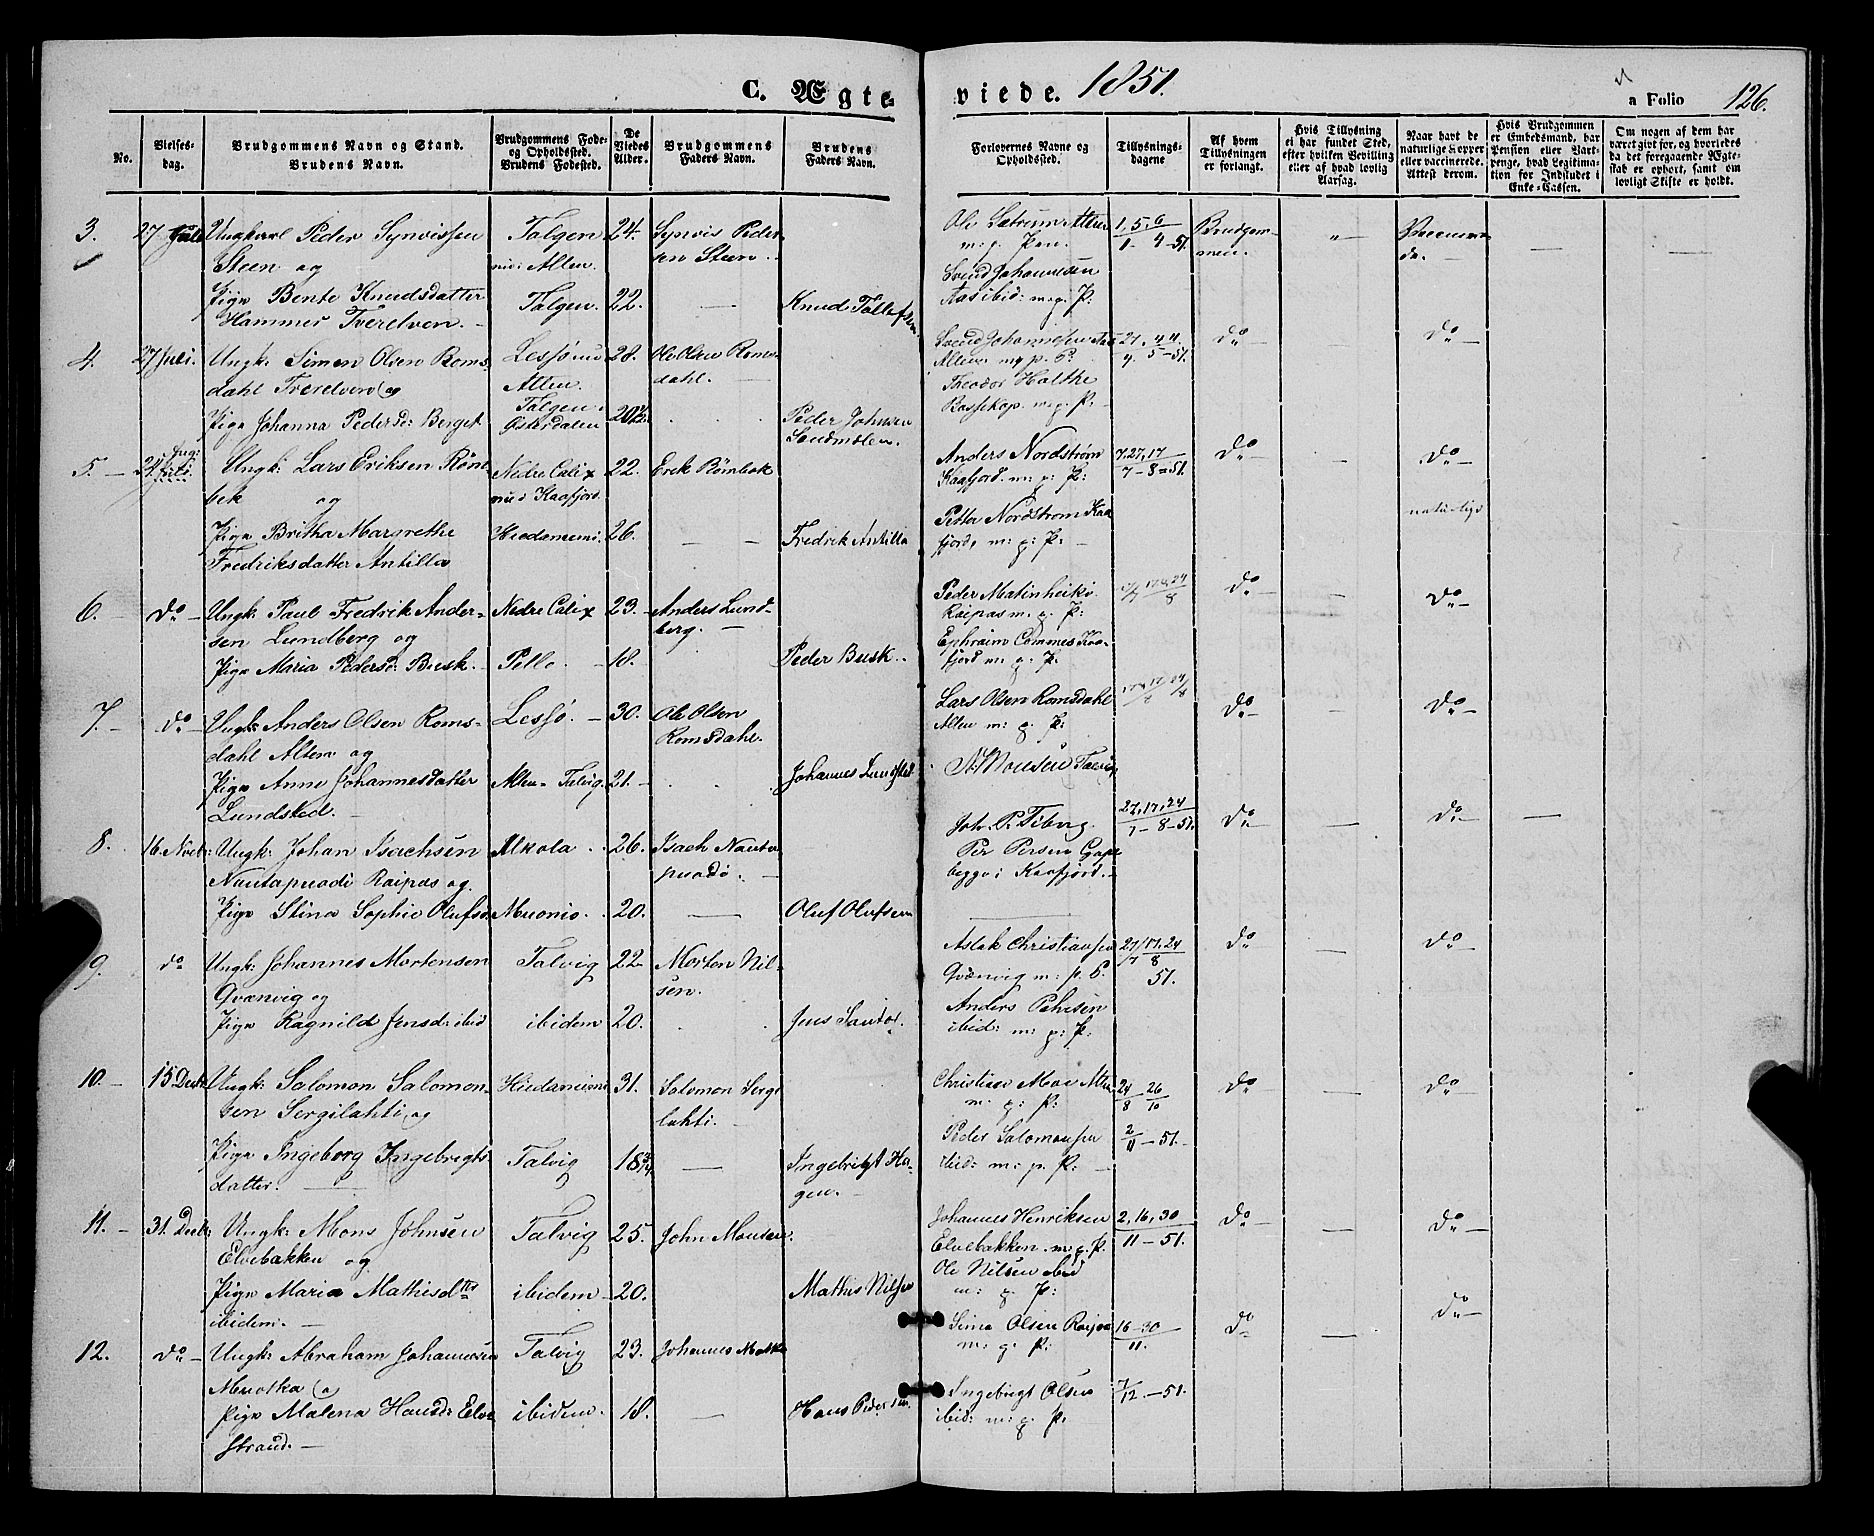 C. Ægte-
viede. 1851.
a Folio 126.
No.
Vielses-
dag.
Brudgommens Navn og Stand.
Brudens Navn.
Brudgommens Føde-
og Opholdssted.
Brudens Fødested.
De
Viedes
Alder.
Brudgommens
Faders Navn.
Brudens
Faders Navn.
Forlovernes Navne og
Opholdssted.
Tillysnings-
dagene
Af hvem
Tillysningen
er forlangt.
Hvis Tillysning
ei har fundet Sted,
efter hvilken Bevilling
eller af hvad lovlig
Aarsag.
Naar havt de
naturlige Kopper
eller vaccinerede.
Attest derom.
Hvis Brudgommen
er Embedsmand, har
Pension eller Vart-
penge, hvad Legitima-
tion for Indskudet i
Enke-Cassen.
Om nogen af dem har
været gift før, og hvorledes
da det foregaaende Ægte-
skab er ophørt, samt om
lovligt Skifte er holdt.
3. 27 Juli Ungkarl Peder Synvissen Talgen 24. Synvis Peder-
Steen og nu: Alten. sen Steen.
Pige Bente Knudsdatter Talgen. 22. — Knud Tollefsen
Hammer Tverelven.
Ole Sætrum Alten 1, 5, 6 Brudgom-
m: p. Pen. 1 - 4 - 51. men.
Svend Johannesen
Aas ibid: m: p. P:
4. 27 Juli. Ungk: Simen Olsen Roms- Lessø nu 28. Ole Olsen Roms-
dahl Tverelven og Alten. dahl.
Talgen
Pige Johanna Pedersd: Berget Østerdalen 20 Peder Johnsen
Svend Johannesen Aas 27, 4 do do
Alten m p. P.
Theodor Holthe
Bossekop. m: p. P:
5. 24 Aug: Ungk: Lars Eriksen Røm- Nedre Calix 22. Erik Rømbek
bek og nu i Kaafjord.
Pige Britha Margrethe Hiedaniemi. 26. — Fredrik Antilla
Fredriksdatter Antilla
Anders Nordstrøm 7, 27, 17 do — do
Kaafjord. m: p: P: 7 - 8 - 51.
naturlige
Petter Nordstrøm Kaa-
fjord, m: p: P:
6. do Ungk: Paul Fredrik Ander- Nedre Calix 23. Anders Lund-
sen Lundberg og berg.
Pige Maria Pedersd: Busk. Pello. 18. Peder Busk.
Peder Matinheiki do — do
Raipas m. p. P:
Ephraim Commes Kaa-
fjord m: p: P.
7. do Ungk: Anders Olsen Roms- Lessø. 30. Ole Olsen
dahl Alten og Romsdahl.
Pige Anne Johannesdatter Alten- Talvig. 21. Johannes Lundsted
Lundsted.
Lars Olsen Romsdahl do — do
Alten m: p: P:
Monsen Talvig
8. 16 Novbr: Ungk: Johan Isachsen Alkola 26. Isach Nauta-
Nautapuodi Raipas og puodi.
Pige Stina Sophie Olufsd: Muonio. 20. — Oluf Olufsen
Joh. P. Fiberg. 27, 17, 24 do — do —
7 - 8 - 51.
Per Persen
begge i Kaafjord.
9. do Ungk: Johannes Mortensen Talvig 22 Morten Nil-
Qvænvig og sen.
Pige Ragnild Jensd: ibid ibidem 20. Jens Santor.
Aslak Christiansen 27/7 17, 24 do — do
Qvænvig m: p. P. 8 51.
Anders Pehrsen
ibid: m: p: P:
10. 15 Decbr Ungk: Salomon Salomon- Hiedaniemi 31. Salomon Sergi-
sen Sergilahti, og lahti.
Pige Ingeborg Ingebrigts- Talvig 18 3/4 — Ingebrigt Ha-
datter. gen.
Christian Moe Alten 24/8 26/10 do — do
m: p: P:
Peder Salomonsen 2/11 - 51.
ibid: m: p. P:
11. 31. Decbr: Ungk: Mons Johnsen Talvig 25. John Monsen
Elvebakken og
Pige Maria Mathisdtr ibidem 20. Mathis Nilsen
ibidem.
Johannes Henriksen 2, 16, 30 do — do
Elvebakken. m: p. P. 11 - 51.
Ole Nilsen ibid
m: p. P:
do
12. do Ungk: Abraham Johannesen Talvig 23. Johannes Muotka
Muotka og
Pige Malena Hansdr: Elve- ibidem. 18. — Hans Pedersen.
strand.
Simen Olsen Raipas 16 - 30 do —
m: p. P: 11.
Ingebrigt Olsen 7/12. - 51.
ibid: m: p. P.